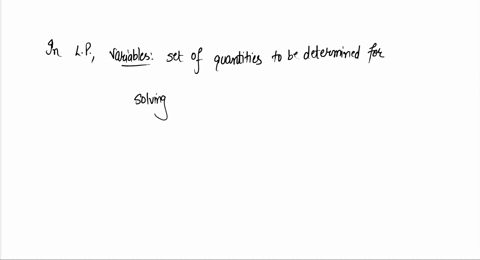 In L.P., variables: set of quantities to be determined for
solving